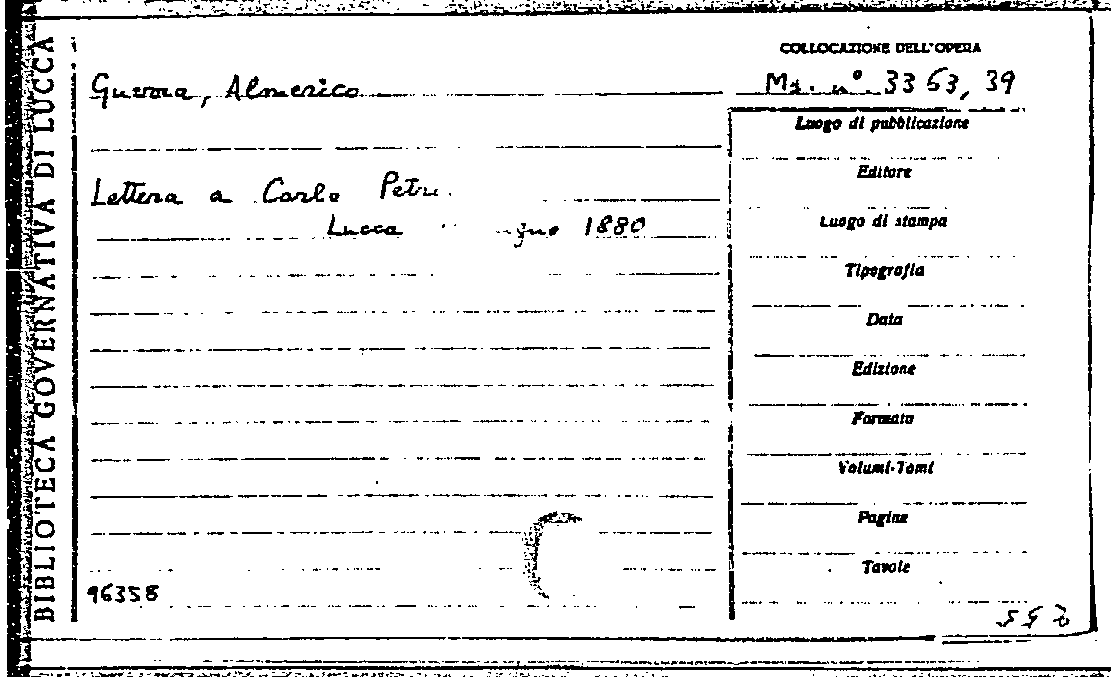 BIBLIOTECA GOVERNATIVA DI LUCCA
COLLOCAZIONE DELL'OPERA
Ms. n° 3363, 39
Guerra, Almerico
Lettera a Carlo
Lucca 1880
Luogo di pubblicazione
Editore
Luogo di stampa
Tipografia
Data
Edizione
Formato
Volumi-Tomi
Pagine
Tavole
96358